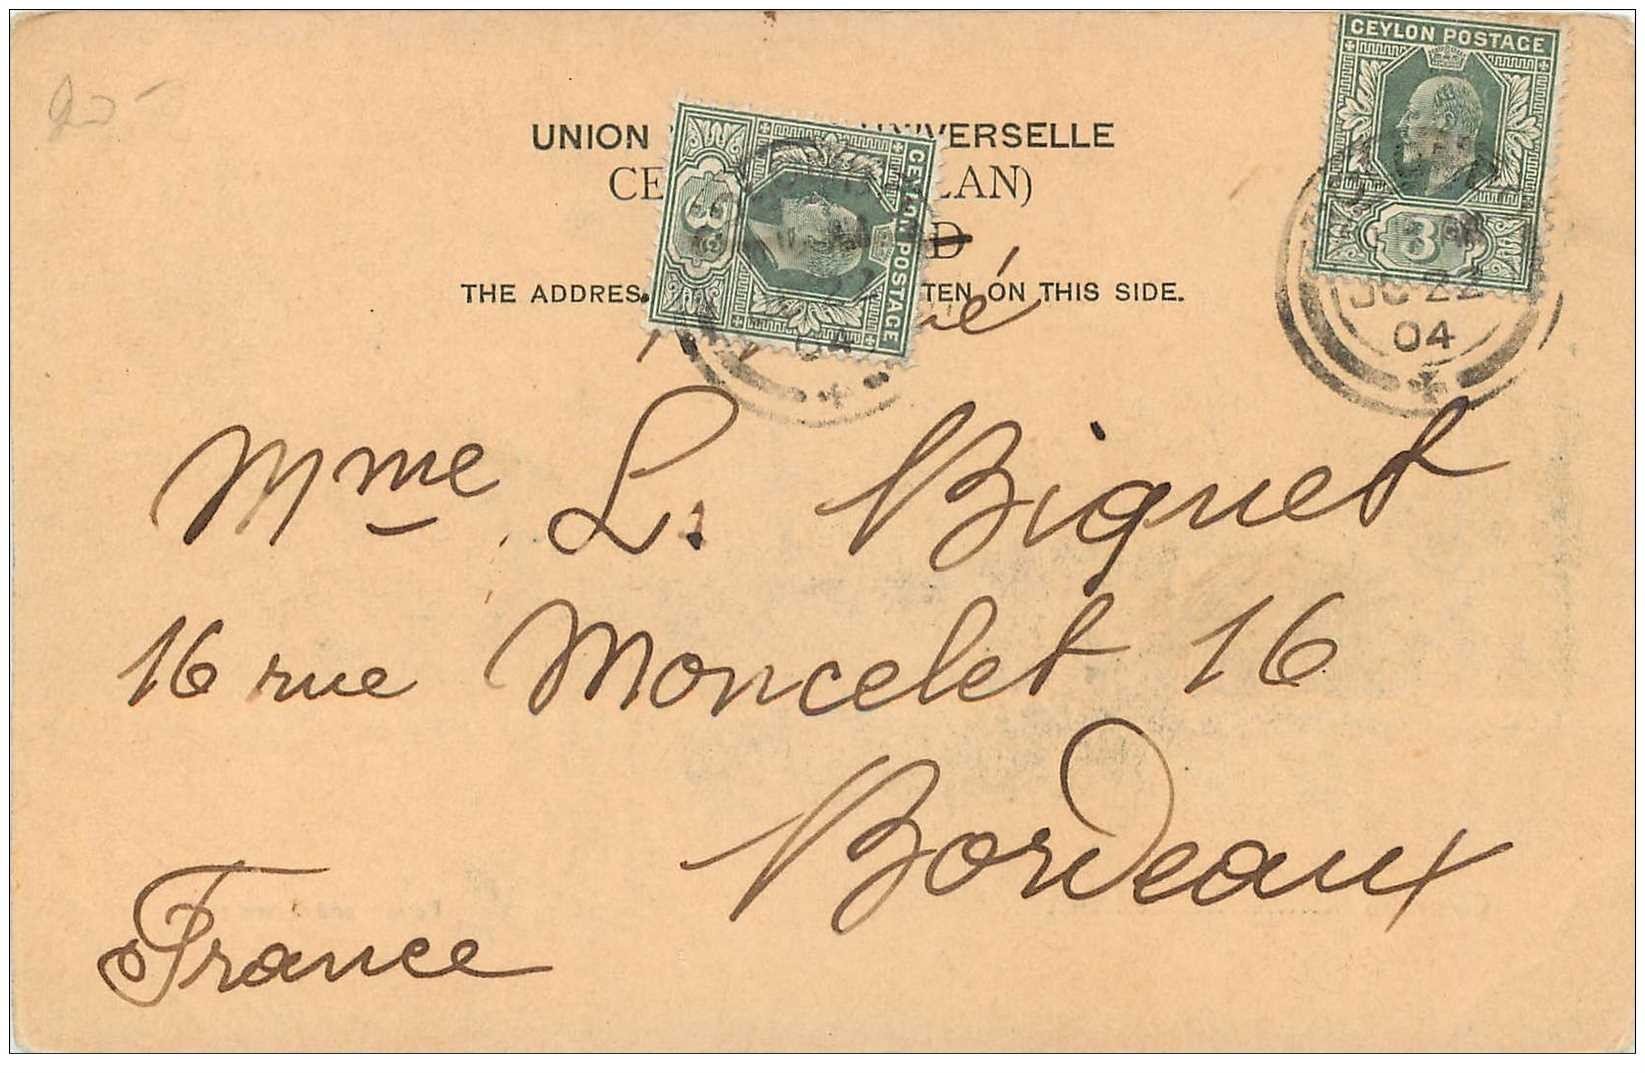 UNION UNIVERSELLE
CE LAN)
D
THE ADDRES TEN ON THIS SIDE.
CEYLON POSTAGE
3
04
CEYLON POSTAGE
3
22
04
Mme L. Biguet
16 rue Moncelet 16
Bordeaux
France